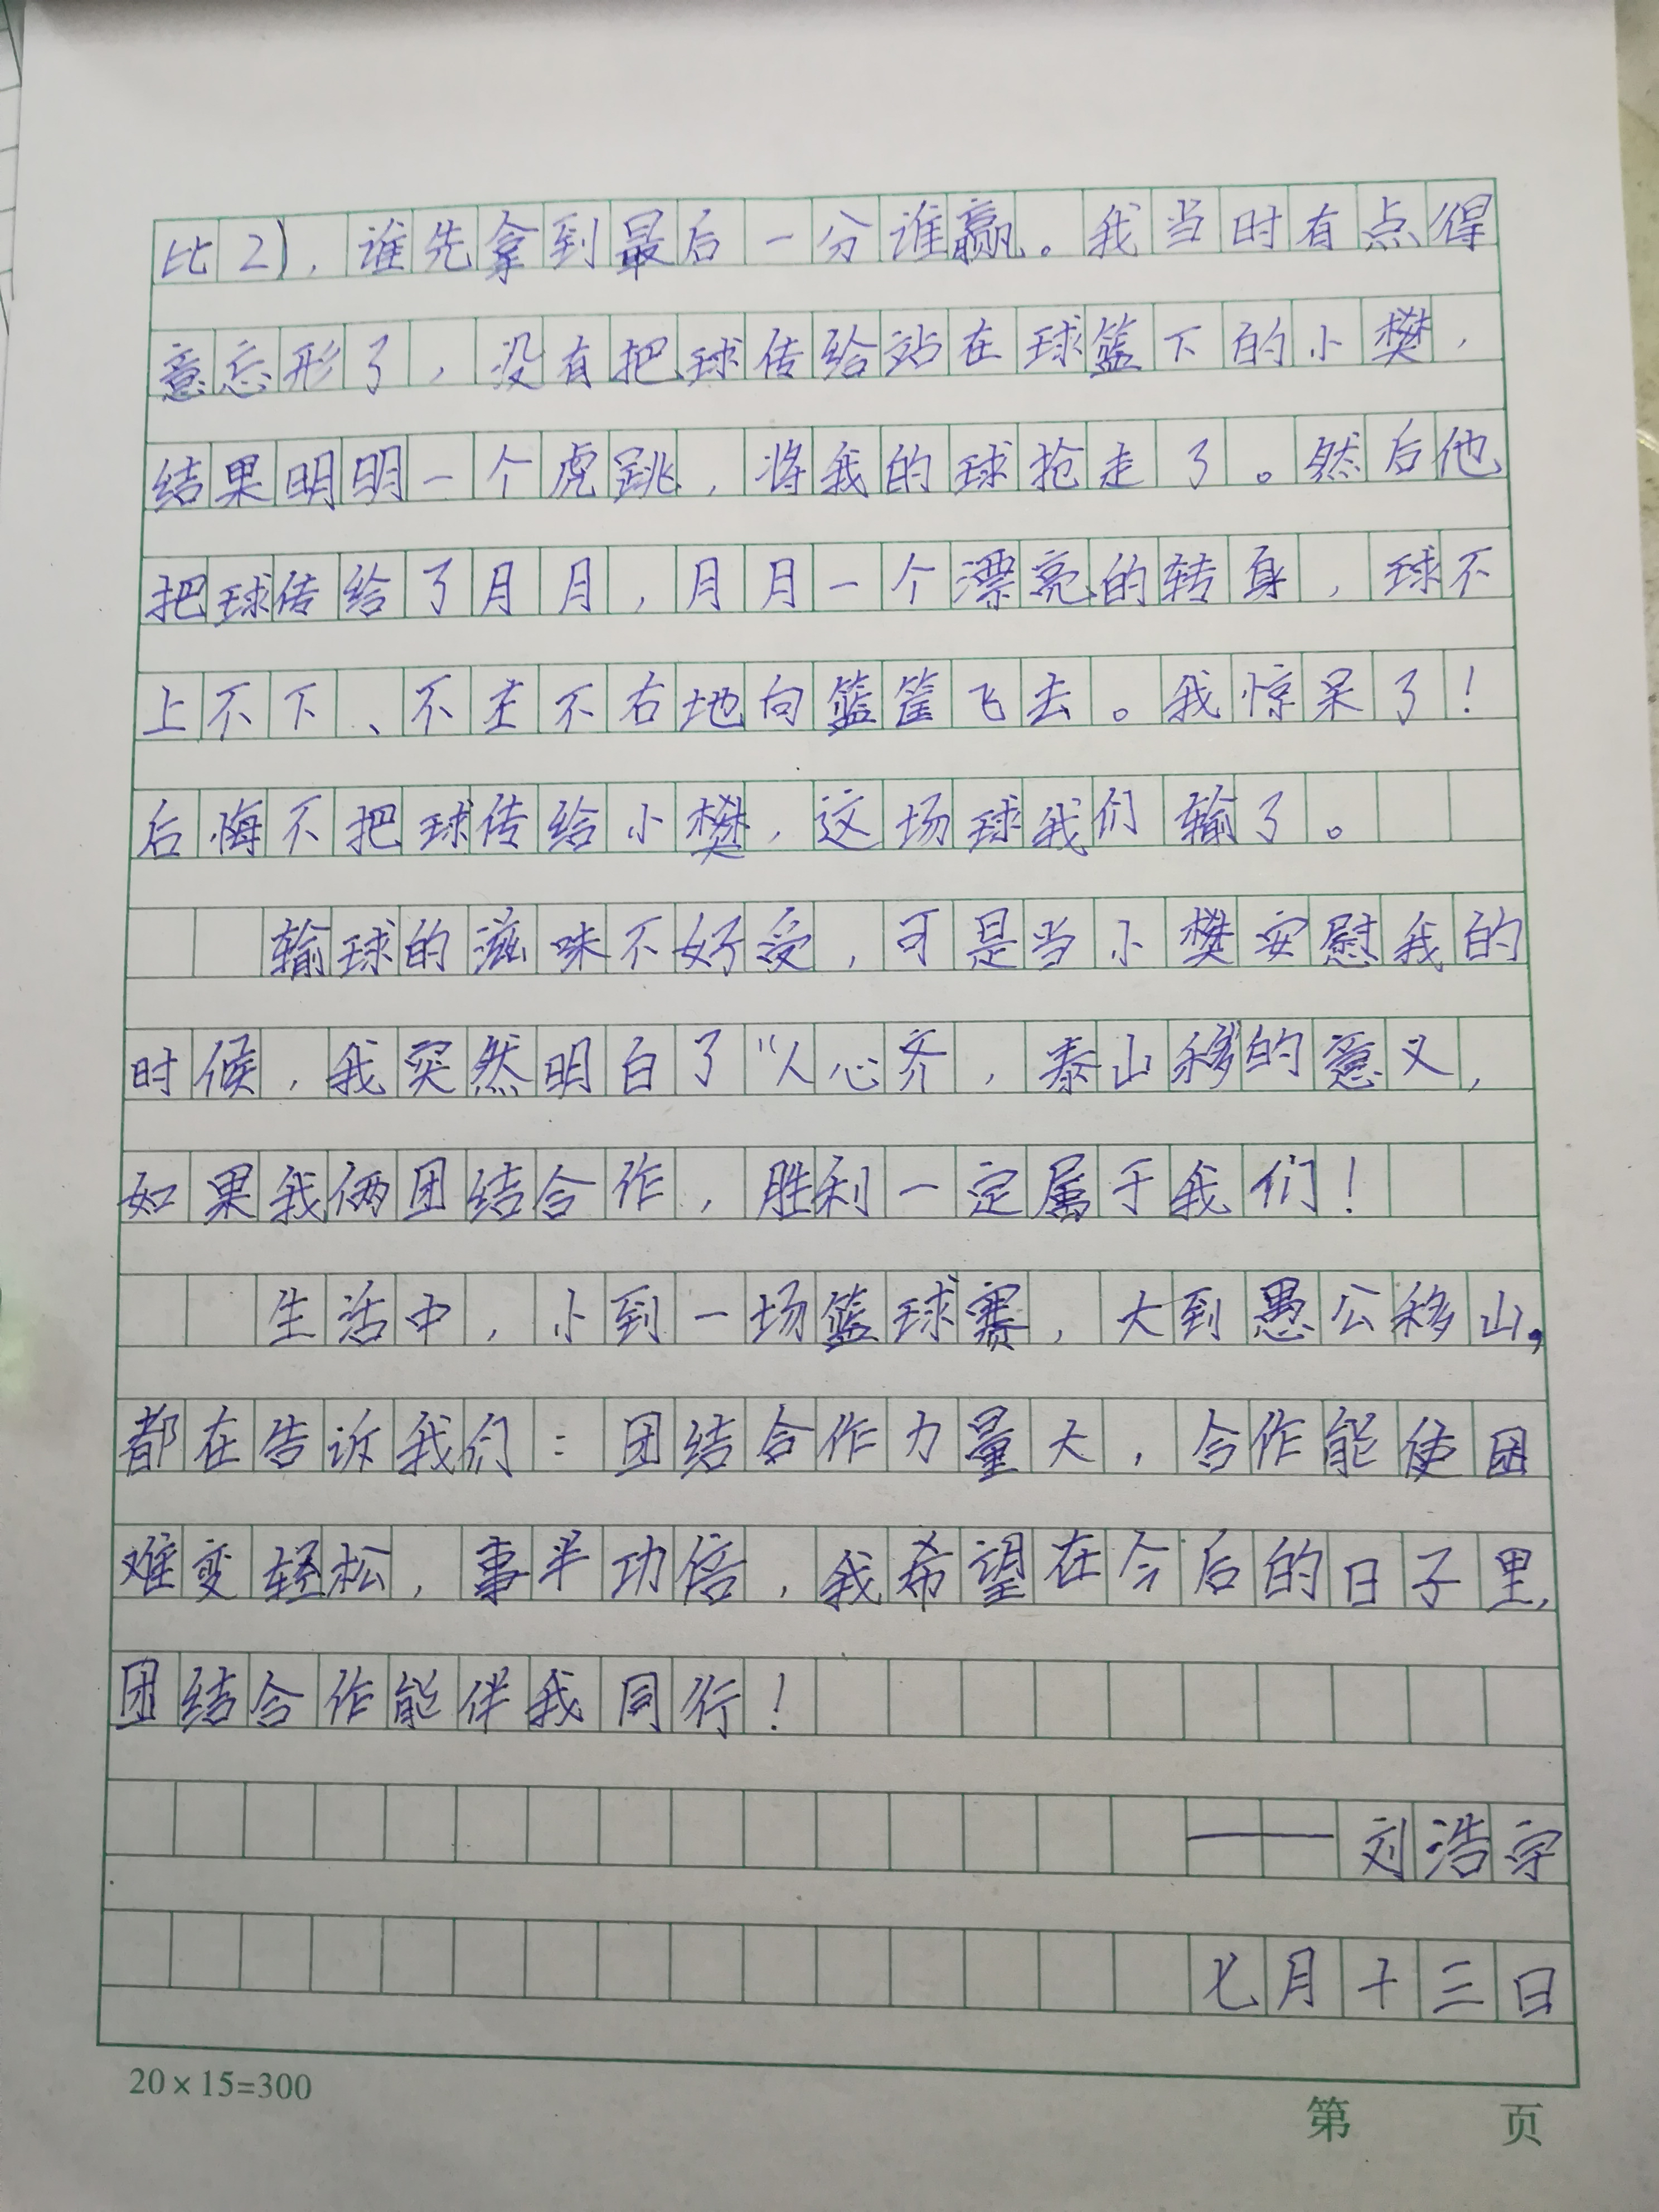 比2），谁先拿到最后一分谁赢。我当时有点得
意忘形了，没有把球传给站在球篮下的小樊，
结果明明一个虎跳，将我的球抢走了。然后他
把球传给了月月，月月一个漂亮的转身，球不
上不下、不左不右地向篮筐飞去。我惊呆了！
后悔不把球传给小樊，这场球我们输了。
输球的滋味不好受，可是当小樊安慰我的
时候，我突然明白了“人心齐，泰山移的意义，
如果我俩团结合作，胜利一定属于我们！
生活中，小到一场篮球赛，大到愚公移山，
都在告诉我们：团结合作力量大，合作能使困
难变轻松，事半功倍，我希望在今后的日子里，
团结合作能伴我同行！
——刘浩宇
七月十三日
20×15=300
第 页